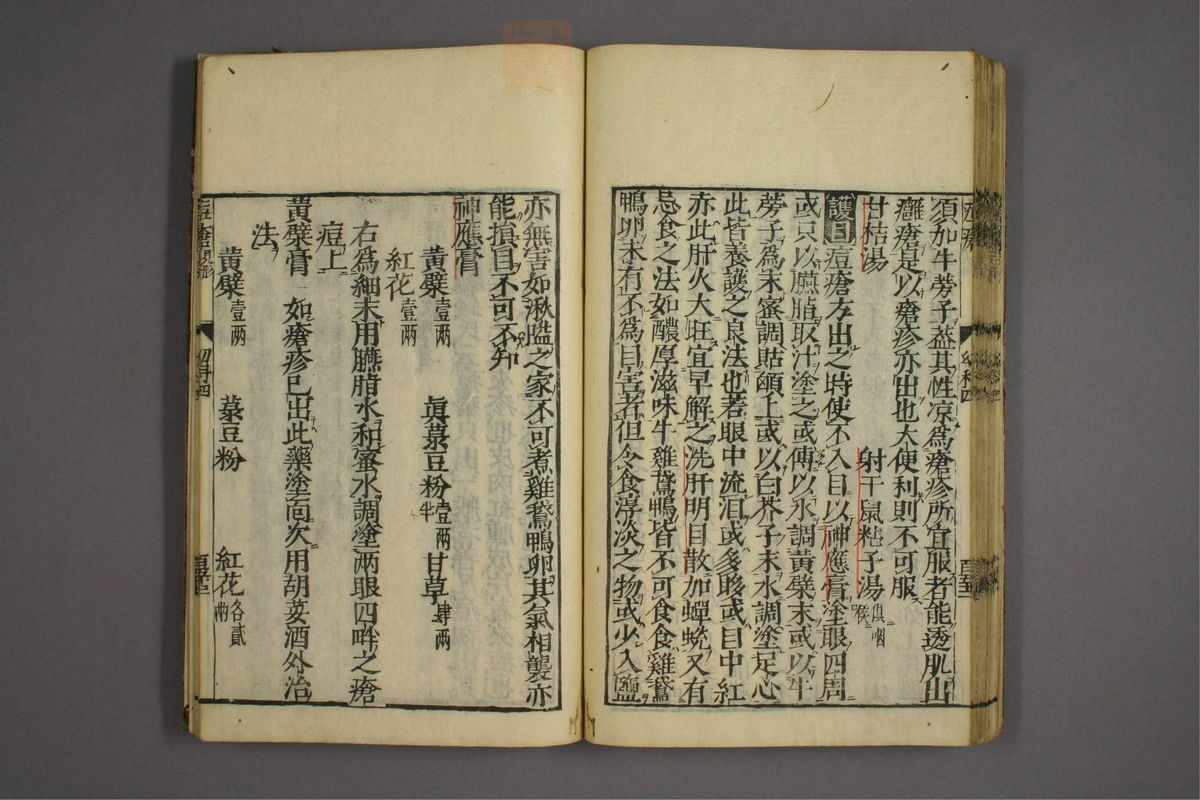 須加牛蒡子益其性凉爲瘡疹所宜服者能透肌出
癰瘡是以瘡疹亦出也大便利則不可服
甘桔湯 射干鼠粘子湯俱咽喉
護目痘瘡方出之時使不入目以神應膏塗眼四周
或只以臙脂取汁塗之或傅以水調黄蘗末或以牛
蒡子爲末蜜調貼顖上或以白芥子末水調塗足心
此皆養護之良法也若眼中流泪或多眵或目中紅
亦此肝火大旺宜早解之洗肝明目散加蟬蛻又有
忌食之法如醲厚滋味牛雞鵞鴨皆不可食食雞鵞
鴨卵未有不爲目害者但令食淳淡之物或少入鹽
亦無害如湫隘之家不可煮雞鵞鴨卵其氣相襲亦
能損目不可不知
神應膏
黄蘗壹兩 眞菉豆粉壹兩半 甘草肆兩
紅花壹兩
右爲細末用臙脂水和蜜水調塗兩眼四畔之瘡
痘上
黄蘗膏 如瘡疹已出此藥塗面次用胡荽酒外治
法
黄蘗 菉豆粉 紅花各貳兩